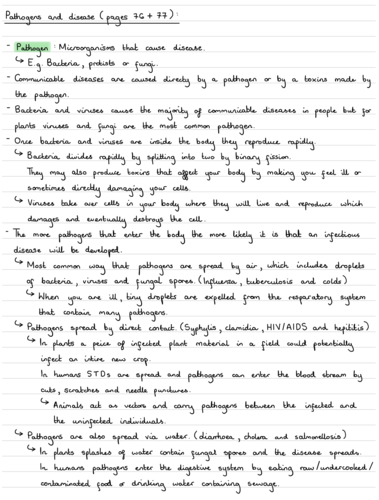 Pathogens and disease (pages 76 + 77):
- Pathogen: Microorganisms that cause disease.
↳ E.g. Bacteria, protists or fungi.
- Communicable diseases are caused directly by a pathogen or by a toxins made by
the pathogen.
- Bacteria and viruses cause the majority of communicable diseases in people but for
plants viruses and fungi are the most common pathogen.
- Once bacteria and viruses are inside the body they reproduce rapidly.
↳ Bacteria divides rapidly by splitting into two by binary fission.
They may also produce toxins that affect your body by making you feel ill or
sometimes directly damaging your cells.
↳ Viruses take over cells in your body where they will live and reproduce which
damages and eventually destroys the cell.
- The more pathogens that enter the body the more likely it is that an infectious
disease will be developed.
↳ Most common way that pathogens are spread by air, which includes droplets
of bacteria, viruses and fungal spores. (Influenza, tuberculosis and colds)
↳ When you are ill, tiny droplets are expelled from the resparatory system
that contain many pathogens.
↳ Pathogens spread by direct contact. (Syphylis, clamidia, HIV/AIDS and hepititis)
↳ In plants a peice of infected plant material in a field could potentially
infect an intire new crop.
In humans STDs are spread and pathogens can enter the blood stream by
cuts, scratches and needle punctures.
↳ Animals act as vectors and carry pathogens between the infected and
the uninfected individuals.
↳ Pathogens are also spread via water. (diarrhoea, cholera and salmonellosis)
↳ In plants splashes of water contain fungal spores and the disease spreads.
In humans pathogens enter the digestive system by eating raw/undercooked/
contaminated food or drinking water containing sewage.